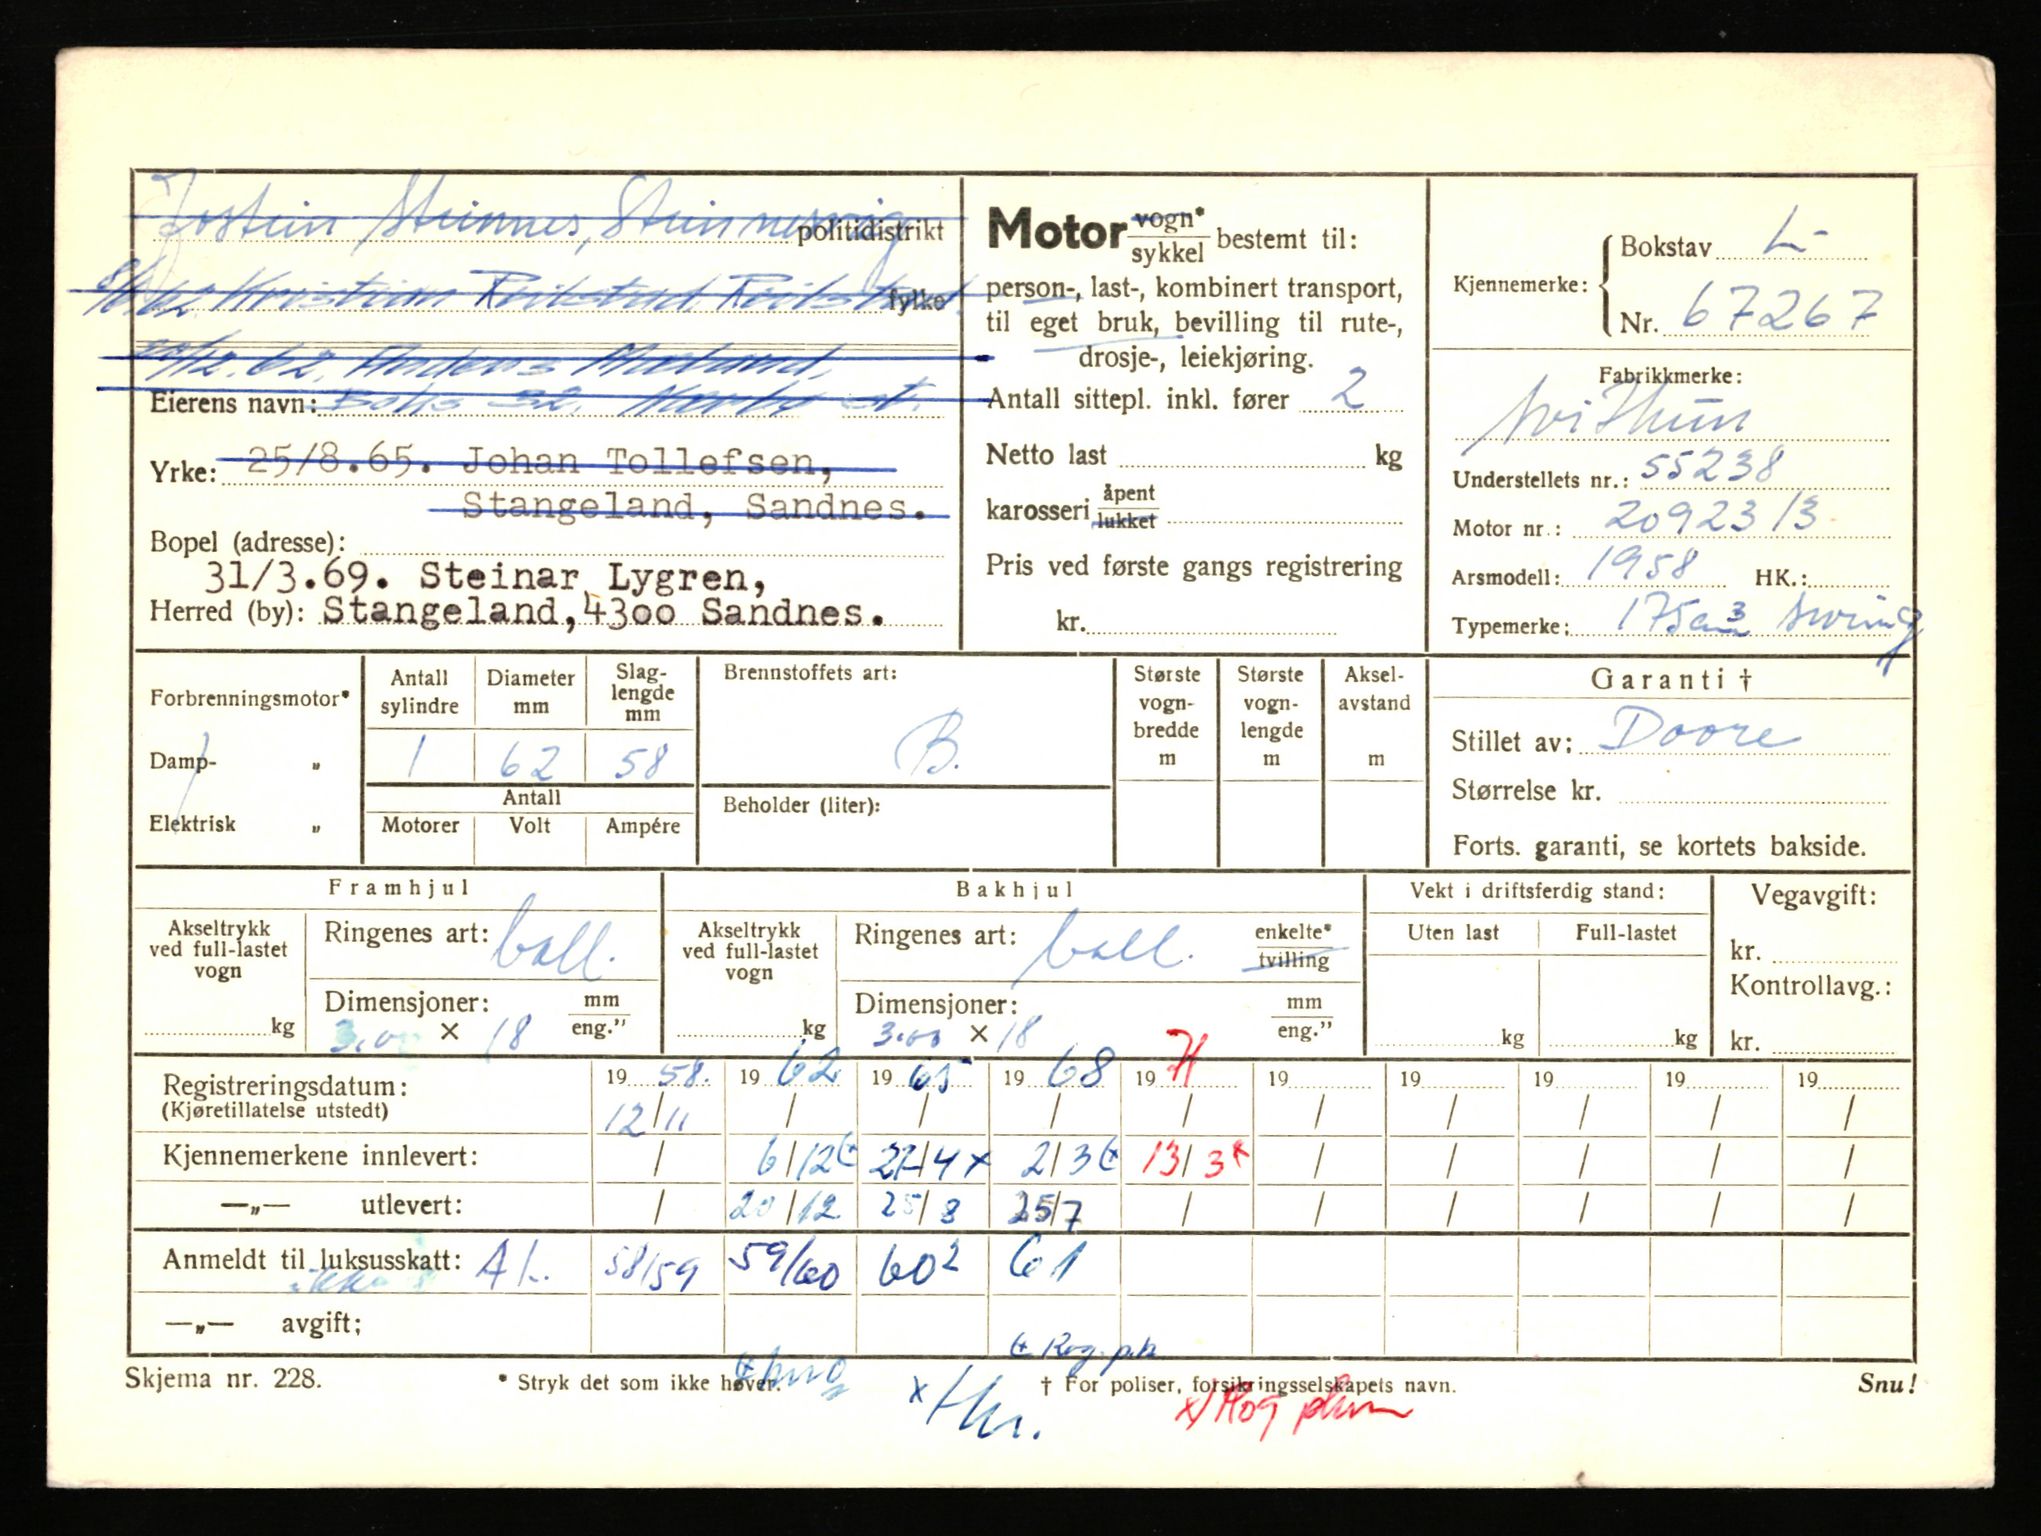 Jostein Steinnes, Steinnesvåg politidistrikt
Kristian fylke
12.62. Anders
Eierens navn: Boks 32. Nærbø st.
Yrke: 25/8.65. Johan Tollefsen,
Stangeland, Sandnes.
Bopel (adresse):
31/3.69. Steinar Lygren,
Herred (by): Stangeland, 4300 Sandnes.
Motor vogn*
sykkel bestemt til:
person-, last-, kombinert transport,
til eget bruk, bevilling til rute-,
drosje-, leiekjøring.
Antall sittepl. inkl. fører 2
Netto last kg
karosseri åpent
lukket
Pris ved første gangs registrering
kr.
Kjennemerke: Bokstav L-
Nr. 67267
Fabrikkmerke:
Svithun
Understellets nr.: 55238
Motor nr.: 20923/3
Arsmodell: 1958 HK.:
Typemerke: 175cm3 swing
Forbrenningsmotor*
Damp- "
Elektrisk "
Antall sylindre Diameter mm Slag-lengde mm
1 62 58
Antall
Motorer Volt Ampére
Brennstoffets art:
B.
Beholder (liter):
Største vogn-bredde m
Største vogn-lengde m
Aksel-avstand m
Garanti †
Stillet av: Doore
Størrelse kr.
Forts. garanti, se kortets bakside.
Framhjul
Akseltrykk ved full-lastet vogn
kg
Ringenes art: ball.
Dimensjoner: mm
3.00 × 18 eng."
Bakhjul
Akseltrykk ved full-lastet vogn
kg
Ringenes art: ball. enkelte*
tvilling
Dimensjoner: mm
3.00 × 18 eng."
Vekt i driftsferdig stand:
Uten last Full-lastet
kg kg
Vegavgift:
kr.
Kontrollavg.:
kr.
Registreringsdatum: 19 58. 19 62 19 65 19 68 19 71 19 19 19 19 19
(Kjøretillatelse utstedt) 12/11 / / / / / / / / /
Kjennemerkene innlevert: / 6/12 27/4 x 2/3 13/3 x / / / / /
—„— utlevert: / 20/12 25/8 25/7 / / / / / /
Anmeldt til luksusskatt: 58/59 59/60 60 2 61
ikke
—„— avgift;
Rog. p.k
Skjema nr. 228. * Stryk det som ikke høver. † For poliser, forsikringsselskapets navn. Snu!
x
x/ Rog